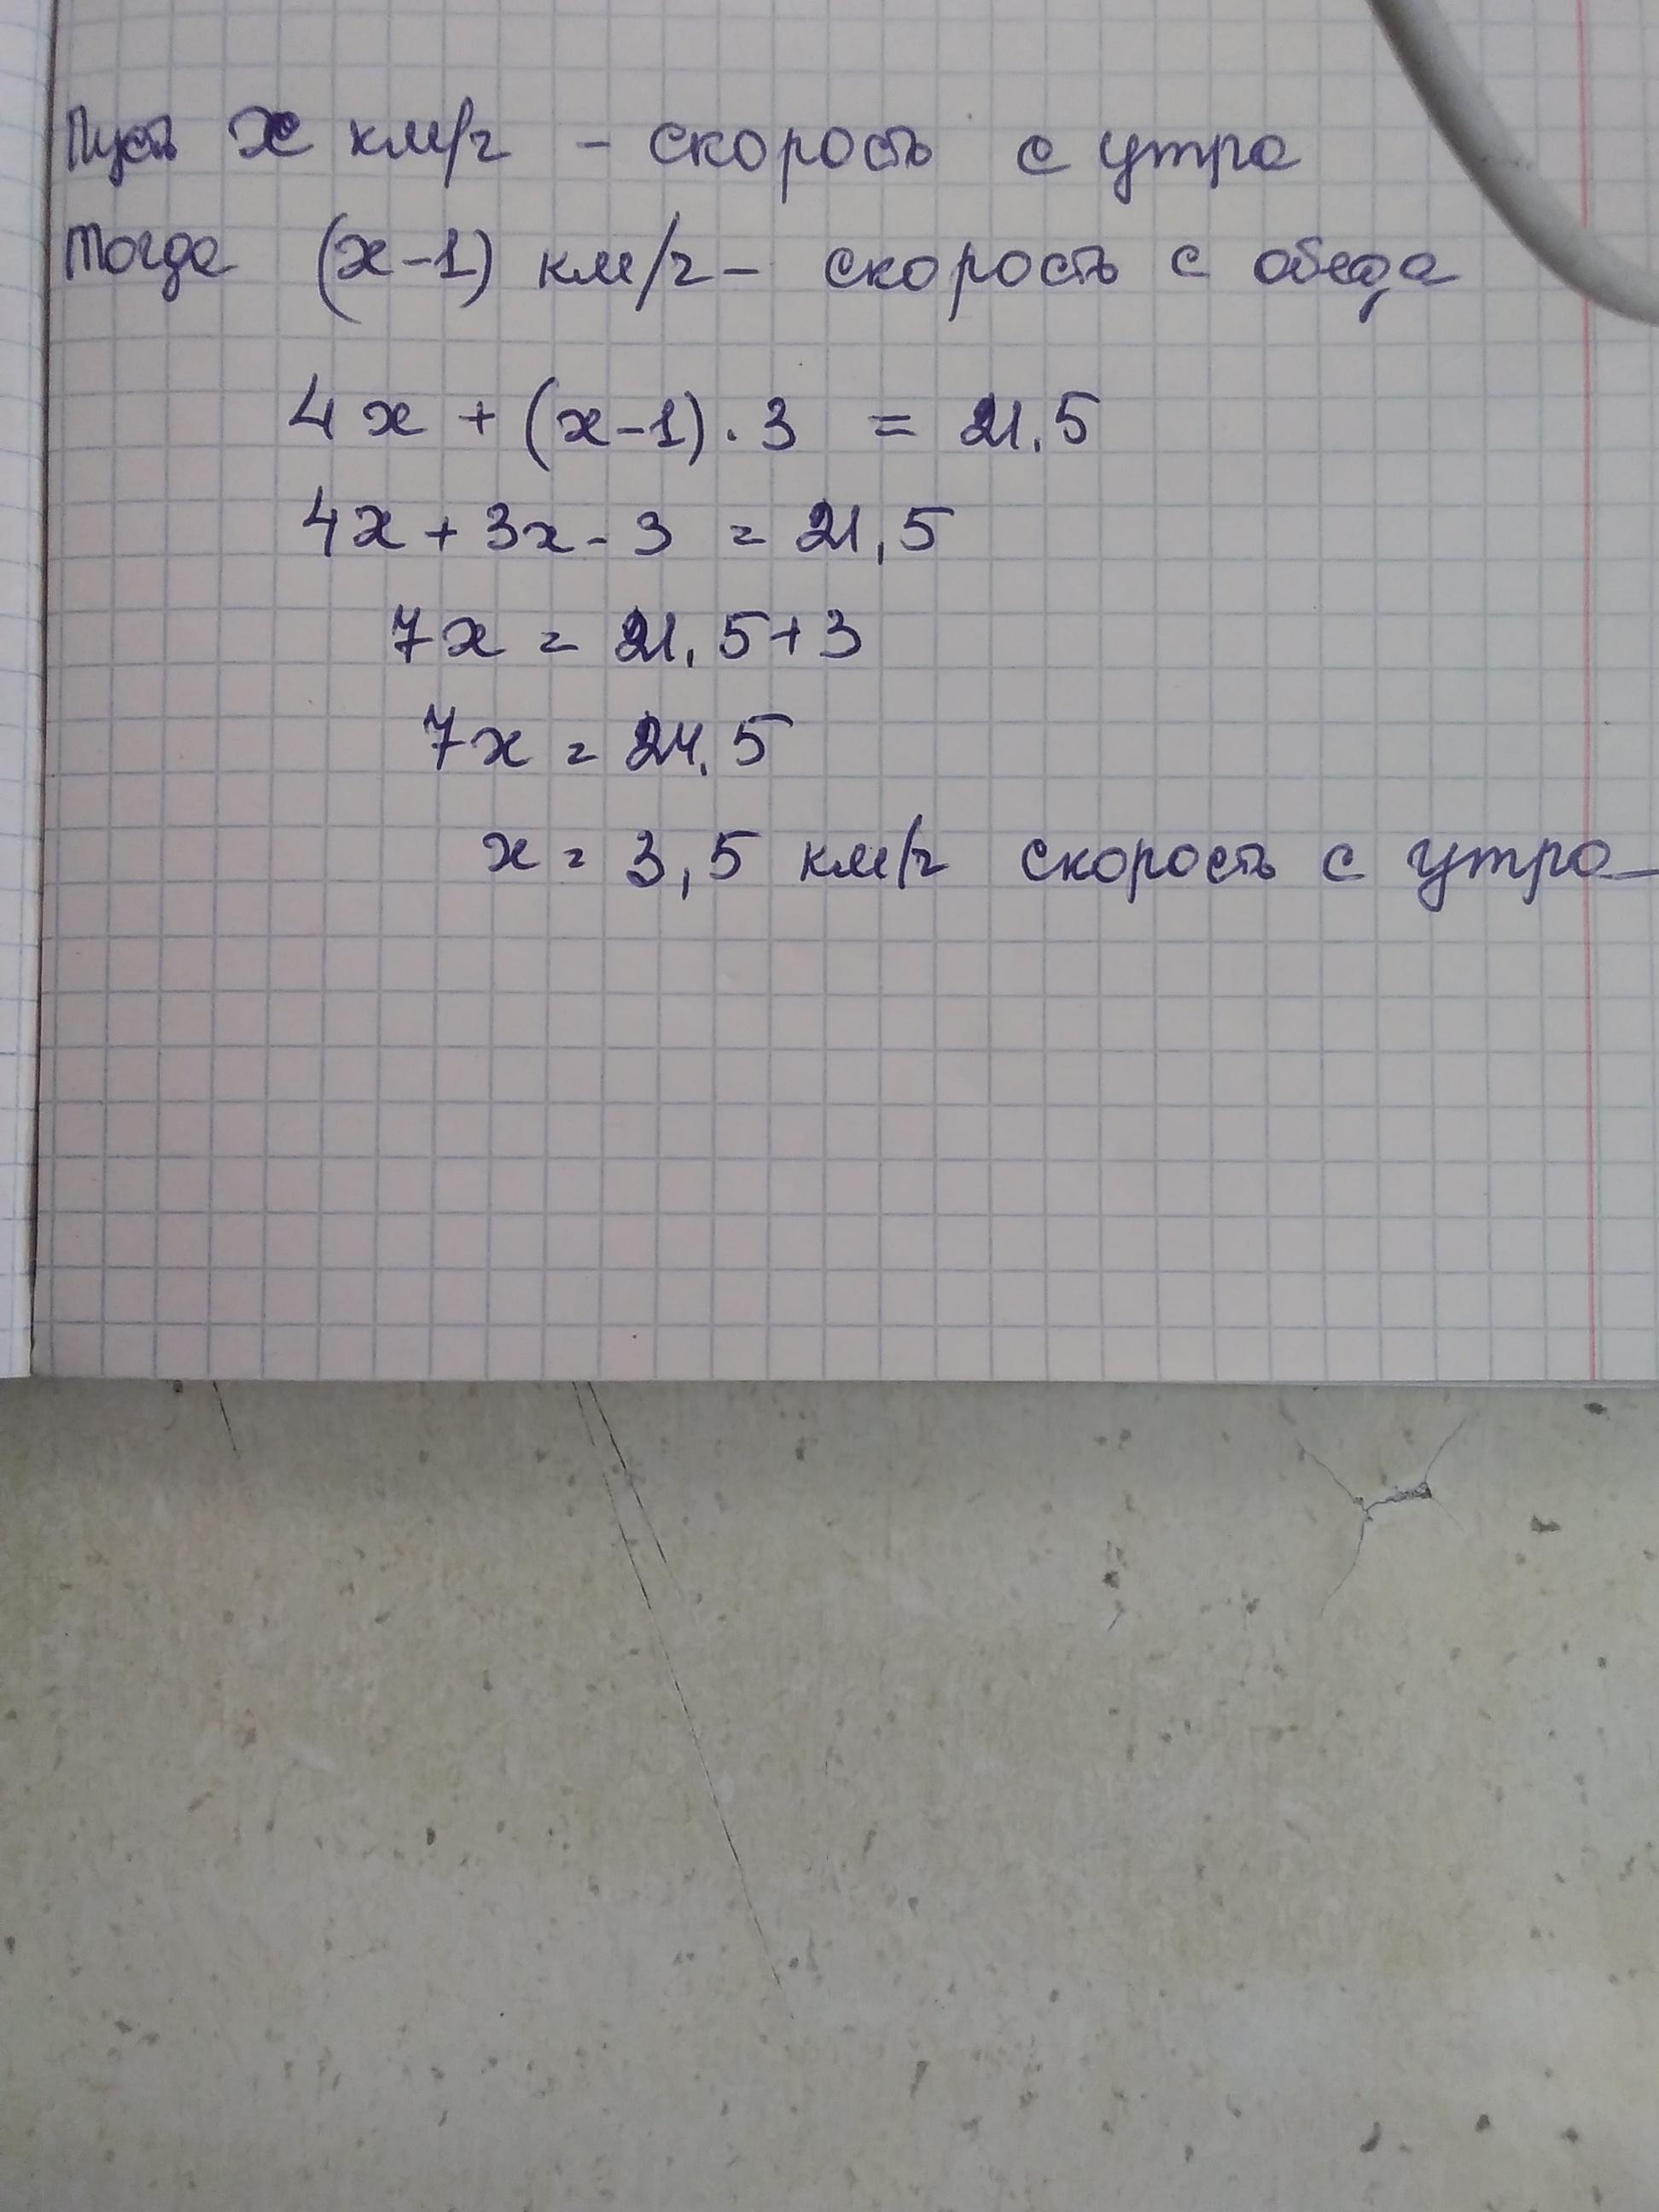 Пусть x км/ч - скорость с утра
Тогда (x-1) км/ч - скорость с обеда
4x + (x-1) · 3 = 21.5
4x + 3x - 3 = 21,5
7x = 21.5+3
7x = 24.5
x = 3,5 км/ч скорость с утра